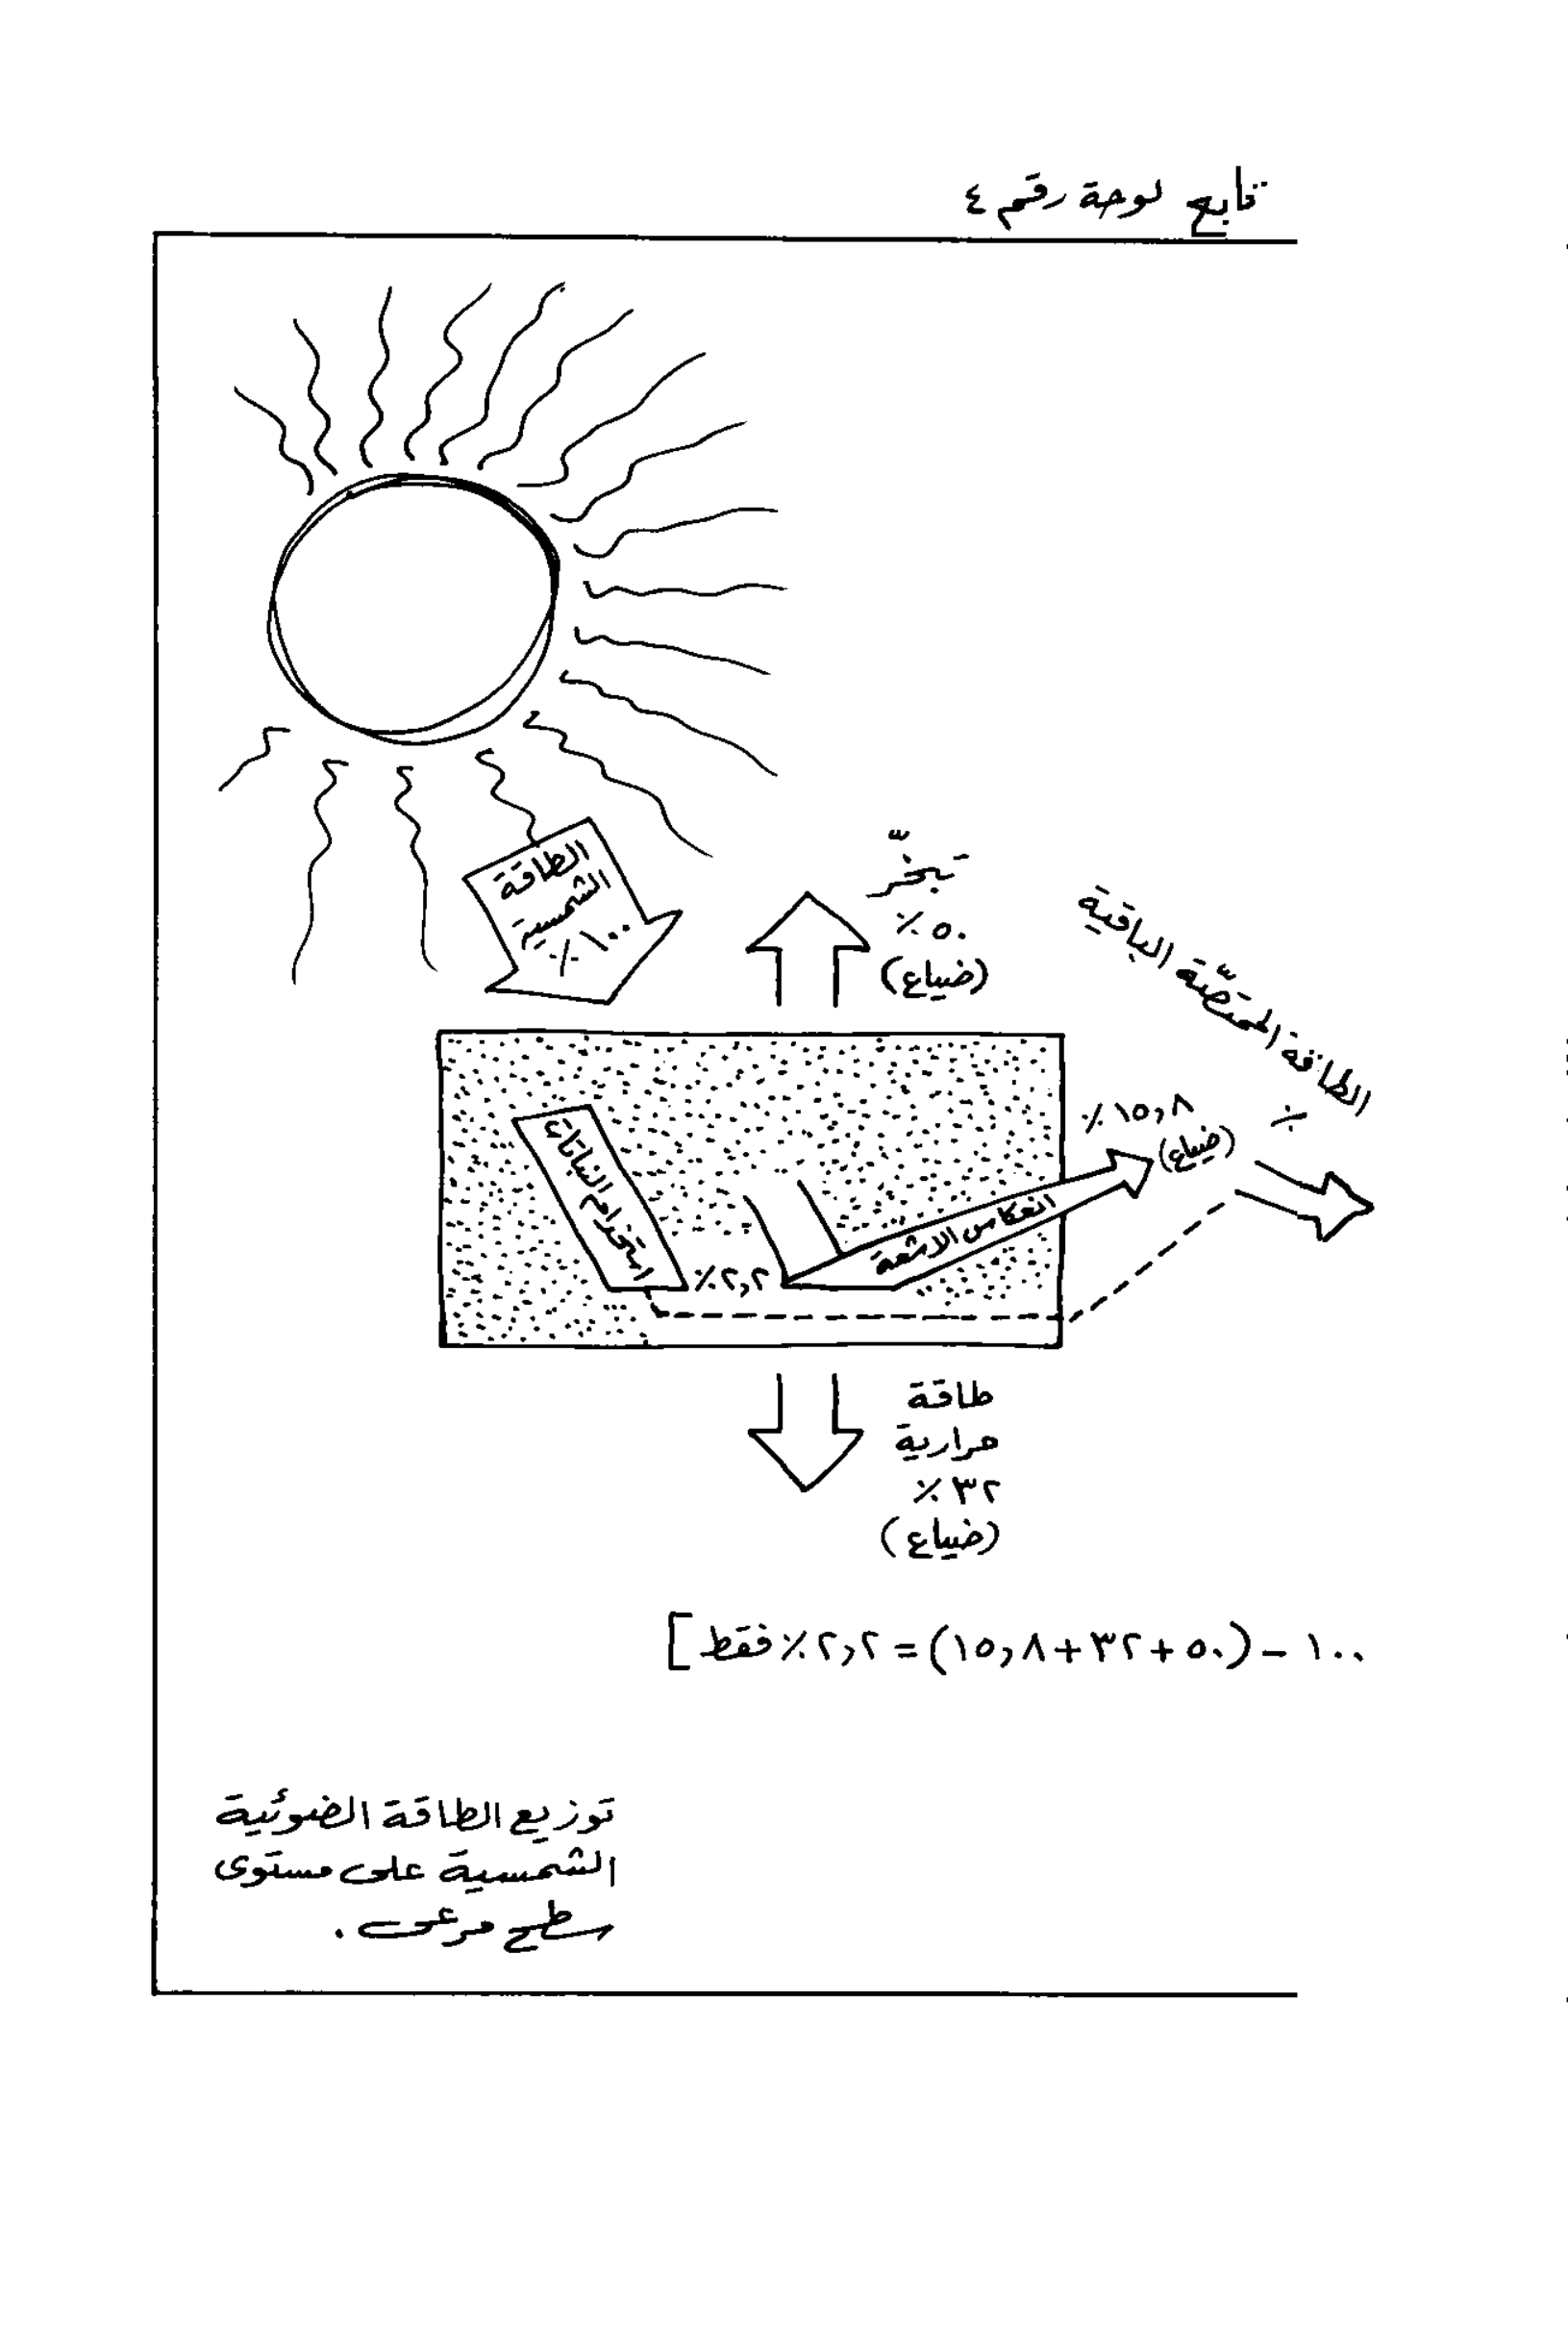 تابع لوحة رقم ٤
الطاقة
الشمسية
١٠٠٪
تبخّر
٥٠٪
(ضياع)
الطاقة الممتصّة الباقية
٪
١٥,٨٪
(ضياع)
انعكاس الاشعة
استخدام النباتات
٢,٢٪
طاقة
حرارية
٣٢٪
(ضياع)
١٠٠ - (٥٠+٣٢+١٥,٨) = ٢,٢٪ فقط]
توزيع الطاقة الضوئية
الشمسية على مستوى
سطح مرعى.